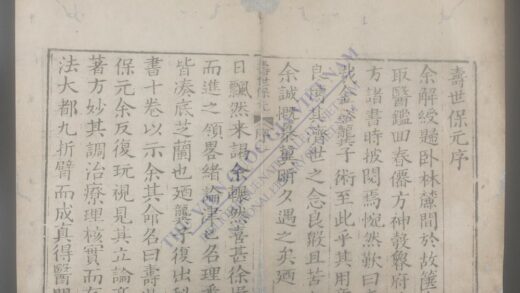 壽世保元序
余解綬懸臥林麓間於故篋
取醫鑑回春僊方神彀寮府
方諸書時披閱焉惋然歎曰
哉金谿龔子術至此乎其用
良其濟世之念良殷且苦
余誠慨景慕所久遇之矣廼
日飄然來謁余囅然喜甚徐
而進之領畧緒論津
皆湊底芝蘭也廼龔子復出
書十卷以示余其命名曰壽世
保元余反復玩視見其立論
著方妙其調治療理核實而
法大都九折臂而成真得醫
壽世保元 序
THƯ VIỆN QUỐC GIA VIỆT NAM
NATIONAL LIBRARY OF VIETNAM